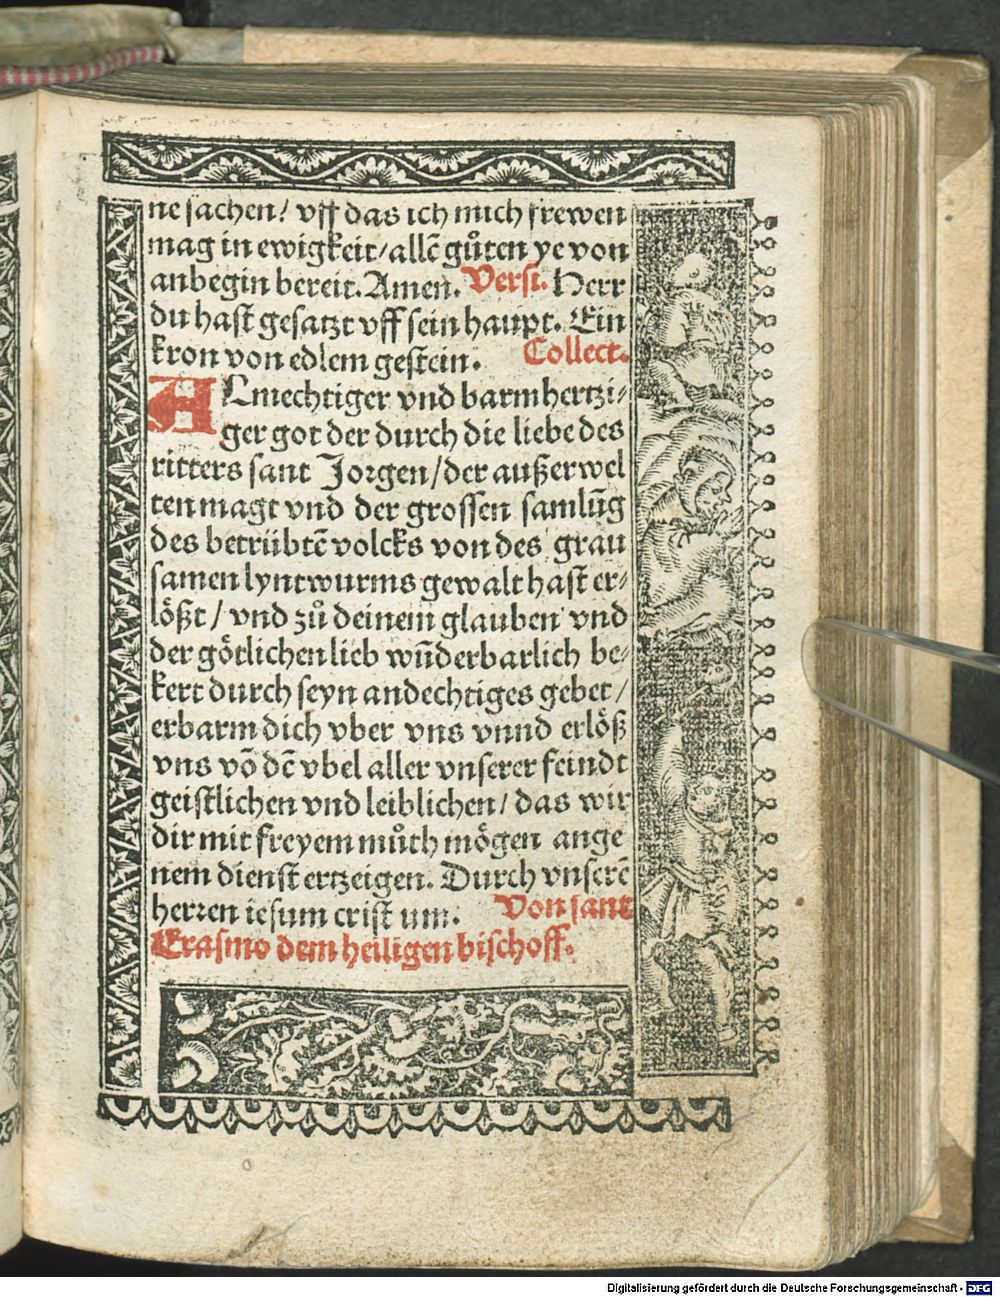 ne sachen/ vff das ich mich frewen
mag in ewigkeit/allē gůten ye von
anbegin bereit. Amen. Versi. Herr
du hast gesatzt vff sein haupt. Ein
kron von edlem gestein. Collect.
ALmechtiger vnd barmhertzi⸗
ger got der durch die liebe des
ritters sant Jorgen/der außerwel
ten magt vnd der grossen samlūg
des betrübtē volcks von des grau
samen lyntwurms gewalt hast er⸗
lößt/ vnd zů deinem glauben vnd
der götlichen lieb wūderbarlich be⸗
kert durch seyn andechtiges gebet/
erbarm dich vber vns vnnd erlöß
vns vō dē vbel aller vnserer feindt
geistlichen vnd leiblichen/ das wir
dir mit freyem můth mögen ange
nem dienst ertzeigen. Durch vnserē
herren iesum crist um. Von sant
Erasmo dem heiligen bischoff.
Digitalisierung gefördert durch die Deutsche Forschungsgemeinschaft - DFG